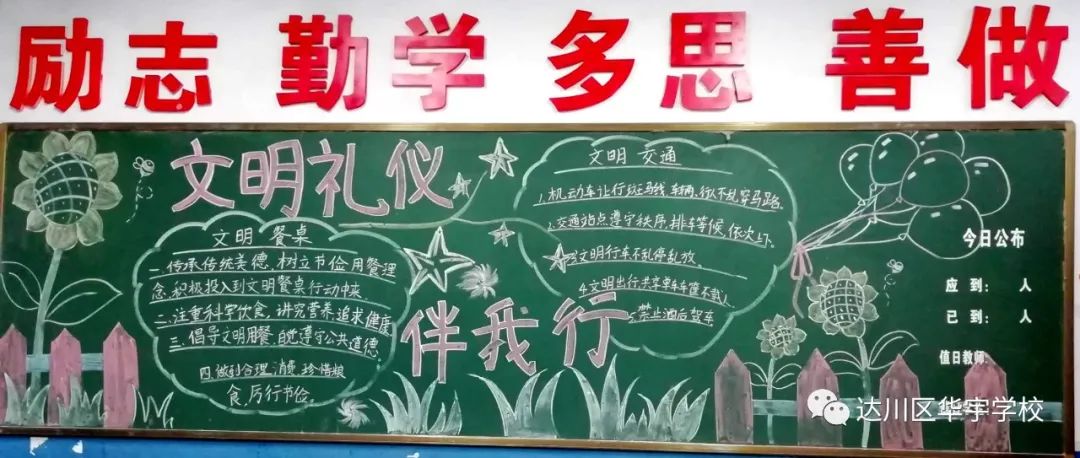 励志 勤学 多思 善做
文明礼仪
伴我行
文明 餐桌
一、传承传统美德、树立节俭用餐理
念,积极投入到文明餐桌行动中来.
二、注重科学饮食、讲究营养、追求健康
三、倡导文明用餐、自觉遵守公共道德
四、做到合理消费、珍惜粮
食、厉行节俭。
文明 交通
1.机动车让行斑马线,车辆、行人不乱穿马路.
2.交通站点遵守秩序,排车等候,依次上下.
3.文明行车不乱停乱放。
4.文明出行共享单车
5.禁止酒后驾车
今日公布
应 到: 人
已 到: 人
值日教师:
达川区华宇学校